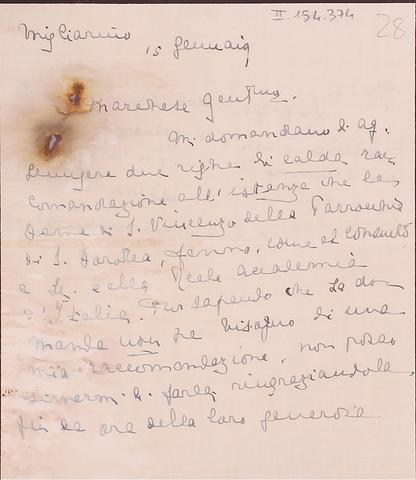 II. 154.374
28
Migliarino
15 Gennaio
Marchese Gentmo.
Mi domandano di ag-
giungere due righe di calda rac-
comandazione all'istanza che le
Dame di S. Vincenzo della Parrocchia
di S. Dorotea, fanno, come al consueto
a Lei e alla Reale Accademia
d'Italia. Pur sapendo che la do-
manda non ha bisogno di una
mia raccomandazione, non posso
esimermi di farla ringraziandola
fin da ora della loro generosa